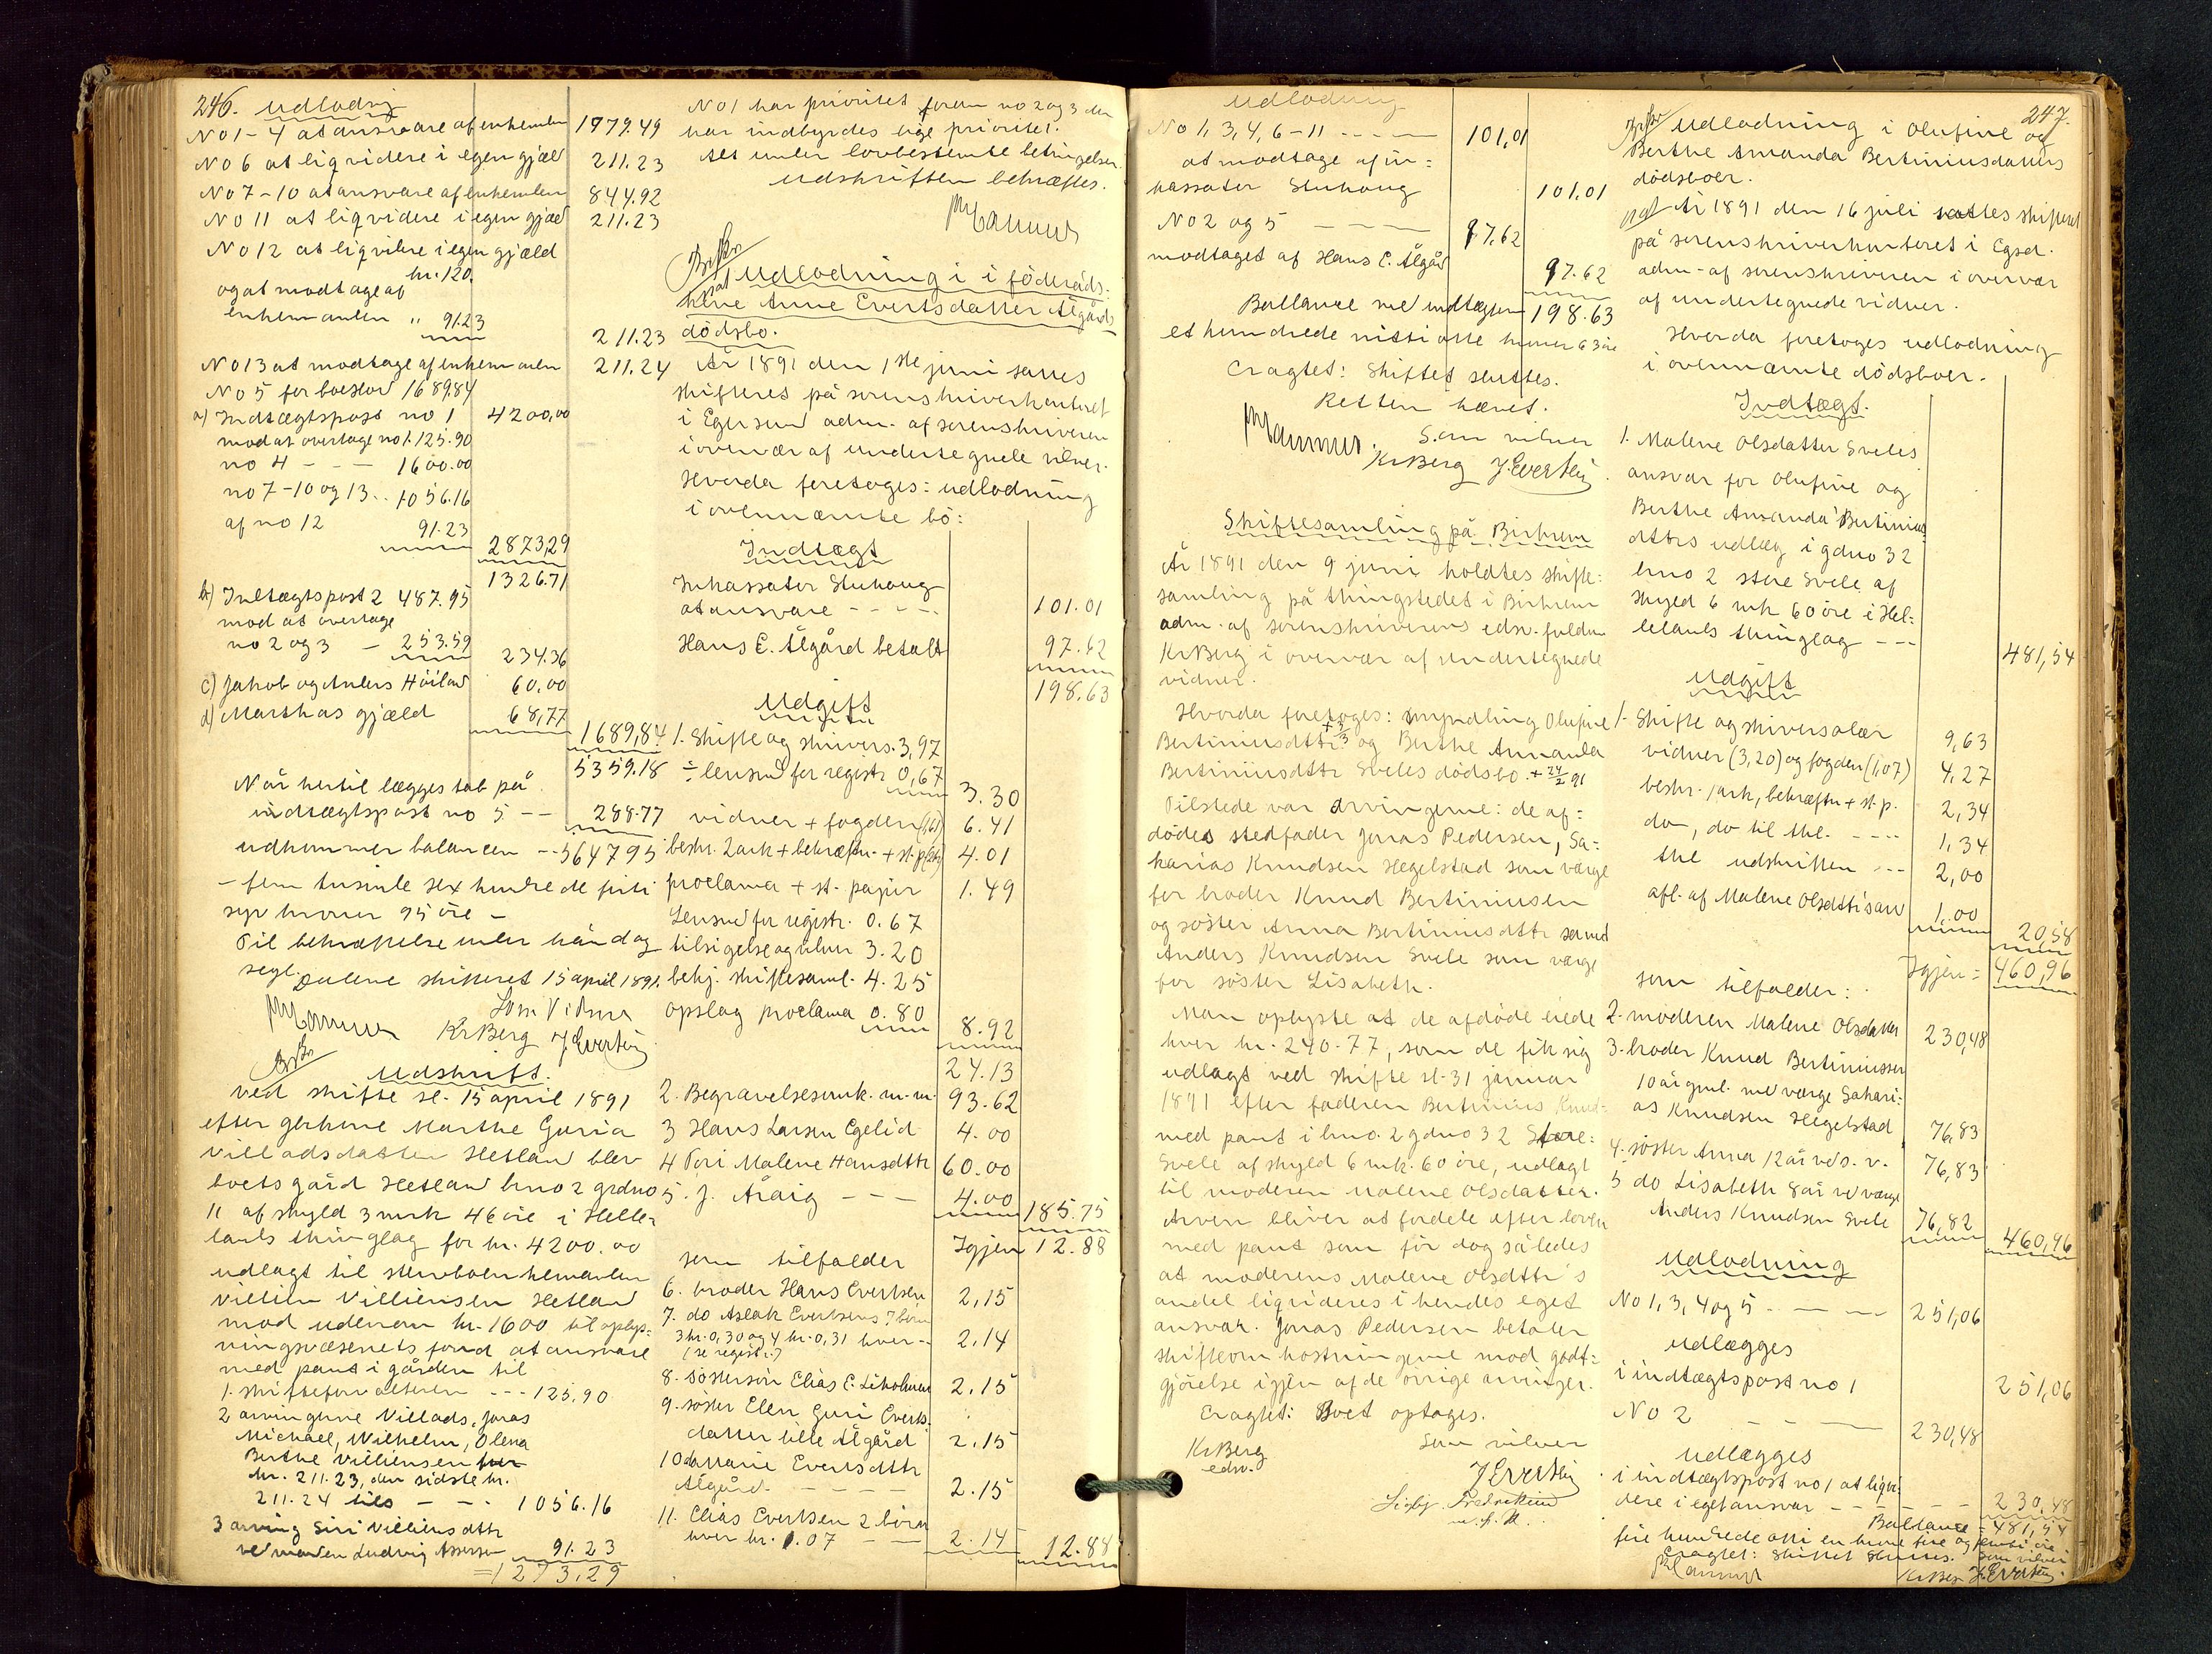 246. Udlodng
No 1-4 at ansvare af enkemanden 1979.49
No 6 at liqvidere i egen gjæld 211.23
No 7-10 at ansvare af enkemanden 844.92
No 11 at liqvidere i egen gjæld 211.23
No 12 at liqvidere i egen gjæld
kr. 120.
og at modtage af
enkemanden " 91.23
211.23
No 13 at modtage af enkemanden 211.24
No 5 for boeslod 1689.84
a) Indtægtspost no 1 4200,00
mod at overtage no 1. 125.90
no 4 - - - 1600.00
no 7-10 og 13.. 1056.16
af no 12 91.23
2873,29
1326.71
b) Indtægtspost 2 487.95
mod at overtage
no 2 og 3 - 253.59
234.36
c) Jakob og Anders Höiland 60.00
d) Marthas gjæld 68,77
1689,84
5359.18
Når hertil lægges tab på
indtægtspost no 5 -- 288.77
udkommer balancen -- 5647 95
- fem tusinde sex hundrede firti
syv kroner 95 öre -
Til bekræftelse under hånd og
segl.
Dalene skifteret 15 april 1891.
Som Vidner
KrBerg JEvertsen
Udskrift.
ved skifte sl. 15 april 1891
efter gårdkone Marthe Guria
Villadsdatter Hetland blev
boets gård Hetland bno 2 grdno
11 af skyld 3 mrk 46 öre i Helle-
lands thinglag for kr. 4200.00
udlagt til stervboenkemanden
Villem Villiensen Hetland
mod udenom kr. 1600 til oplys-
ningsvæsenets fond at ansvare
med pant i gården til
1. skifteforvalteren --- 125.90
2 arvingerne Villads, Jonas
Michael, Wilhelm, Olena
Berthe Villiensen hver
kr. 211.23, den sidste kr.
211.24 tils - - - 1056.16
3 arving Siri Villiensdttr
ved manden Ludvig Assersen 91.23
=1273.29
No 1 har prioritet foran no 2 og 3 der
har indbyrdes lige prioritet.
Alt under lovbestemte betingelser.
Udskriften bekræftes.
Udlodning i i föderåds-
kone Anne Evertsdatter Ålgårds
dödsbo.
År 1891 den 1ste juni sattes
skifteret på sorenskriverkontoret
i Egersund adm. af sorenskriveren
i overvær af undertegnede vidner.
Hvorda foretoges: udlodning
i ovennæmte bo:
Indtægt
Inkassator Stuhaug
at ansvare - - - - 101.01
Hans E. Ålgård betalt 97.62
198.63
Udgift
1. Skifte og skrivers. 3,97
÷ lensmd for registr 0,67
3.30
vidner + fogden (1,61) 6.41
beskr. 2 ark + bekræftn. + st. p. 4.01
proclama + st. papir 1.49
Lensmd for registr. 0.67
tilsigelse og vidner 3.20
bekj. skiftesaml. 4.25
opslag proclama 0.80
8.92
24.13
2. Begravelsesomk. m.m. 93.62
3 Hans Larsen Egelid 4.00
4 Tori Malene Hansdttr 60.00
5. J. Åraig - - - 4.00
185.75
Igjen 12.88
som tilfalder
6. broder Hans Evertsen 2,15
7. do Aslak Evertsens 7 börn
3 kr. 0,30 og 4 kr. 0,31 hver -- 2.14
(se registr.)
8. sösterson Elias E. Liholmen 2.15
9. söster Ellen Guri Everts-
datter lille Ålgård 2.15
10 do Marie Evertsdttr
Ålgård. - - - - 2.15
11. Elias Evertsen 2 börn
hver kr. 1.07 - - 2.14
12.88
Udlodning
No 1, 3, 4, 6-11 - - - - 101,01
at modtage af in-
kassator Stuhaug 101.01
No 2 og 5 - - - - 97.62
modtaget af Hans E. Ålgård
97.62
Ballance med indtægten 198.63
et hundrede nitti otte kroner 63 öre
Eragtet: Skiftet sluttes.
Retten hævet.
Som vidner
KrBerg JEvertsen
Skiftesamling på Birkrem
År 1891 den 9 juni holdtes skifte-
samling på thingstedet i Birkrem
adm. af sorenskriverens edsv. fuldm
KrBerg i overvær af undertegnede
vidner.
Hvorda foretoges: myndling Olufine
Bertiniusdttr + 3/3 og Berthe Amanda
Bertiniusdttr Sveles dödsbo. + 24/2 91
Tilstede var arvingerne: de af-
dödes stedfader Jonas Pedersen, Sa-
karias Knudsen Hegelstad som værge
for broder Knud Bertiniusen
og söster Anna Bertiniusdttr samt
Anders Knudsen Svele som værge
for söster Lisabeth.
Man oplyste at de afdöde eiede
hver kr. 240.77, som de fik sig
udlagt ved skifte sl. 31 januar
1891 efter faderen Bertinius Knud-
med pant i bno. 2 gdno 32 Store-
Svele af skyld 6 mk. 60 öre, udlagt
til moderen Malene Olsdatter.
Arven bliver at fordele efter loven
med pant som för dog således
at moderens Malene Olsdttr's
andel liqvideres i hendes eget
ansvar. Jonas Pedersen betaler
skifteomkostningerne mod godt-
gjörelse igjen af de övrige arvinger.
Eragtet: Boet optages.
KrBerg
edsv.
Som vidner
JEvertsen
247.
Udlodning i Olufine og
Berthe Amanda Bertiniusdatters
dödsboer.
År 1891 den 16 juli sattes skifteret
på sorenskriverkontoret i Egsd.
adm. af sorenskriveren i overvær
af undertegnede vidner.
Hvorda foretoges udlodning
i ovennæmte dödsboer.
Indtægt.
1. Malene Olsdatter Sveles
ansvar for Olufine og
Berthe Amanda Bertinius
dttrs udlæg i gdno 32
bno 2 store Svele af
skyld 6 mk 60 öre i Hel-
lelands thinglag --- 481,54
Udgift
1. Skifte og skriversalær 9,63
vidner (3,20) og fogden (1,07) 4,27
beskr. 1 ark, bekræftn + st. p. 2,34
do, do til thl. - - - - 1,34
thl udskriften - - - 2,00
afl. af Malene Olsdttr's ansv 1,00
20,58
Igjen = 460,96
som tilfalder:
2. moderen Malene Olsdatter 230,48
3. broder Knud Bertiniussen
10 år gml. med værge Sakari-
as Knudsen Hegelstad 76,83
4. söster Anna 12 år ved s. v. 76,83
5 do Lisabeth 8 år ved værge
Anders Knudsen Svele 76,82
460,96
Udlodning
No 1, 3, 4 og 5 - - - - 251,06
udlægges
i indtægtspost no 1 251,06
No 2 - - - 230,48
udlægges
i indtægtspost no 1 at liqvi-
dere i eget ansvar - - - - - 230,48
Ballance = 481,54
fire hundrede otti en krone fire og femti öre
Eragtet: Skiftet sluttes. Som vidner
KrBerg JEvertsen